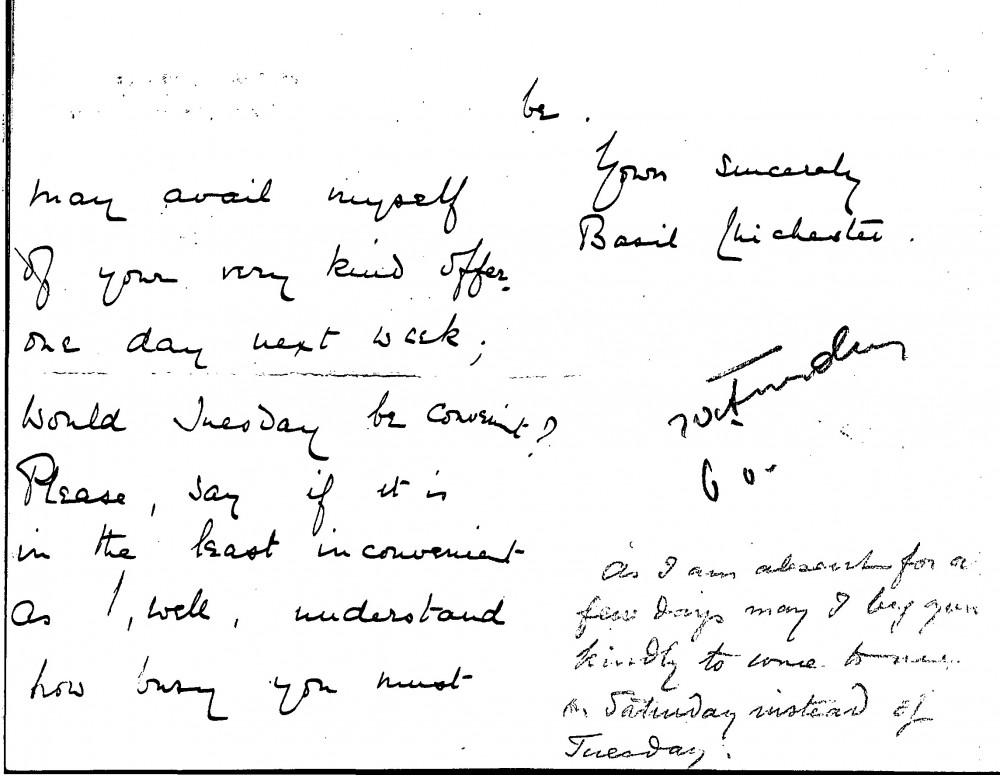 may avail myself
of your very kind offer
one day next week;
Would Tuesday be convenient?
Please, say if it is
in the least inconvenient
as I, well, understand
how busy you must
be.
Yours sincerely
Basil Chichester.
As I am absent for a
few days may I beg you
kindly to come to me
on Saturday instead of
Tuesday.